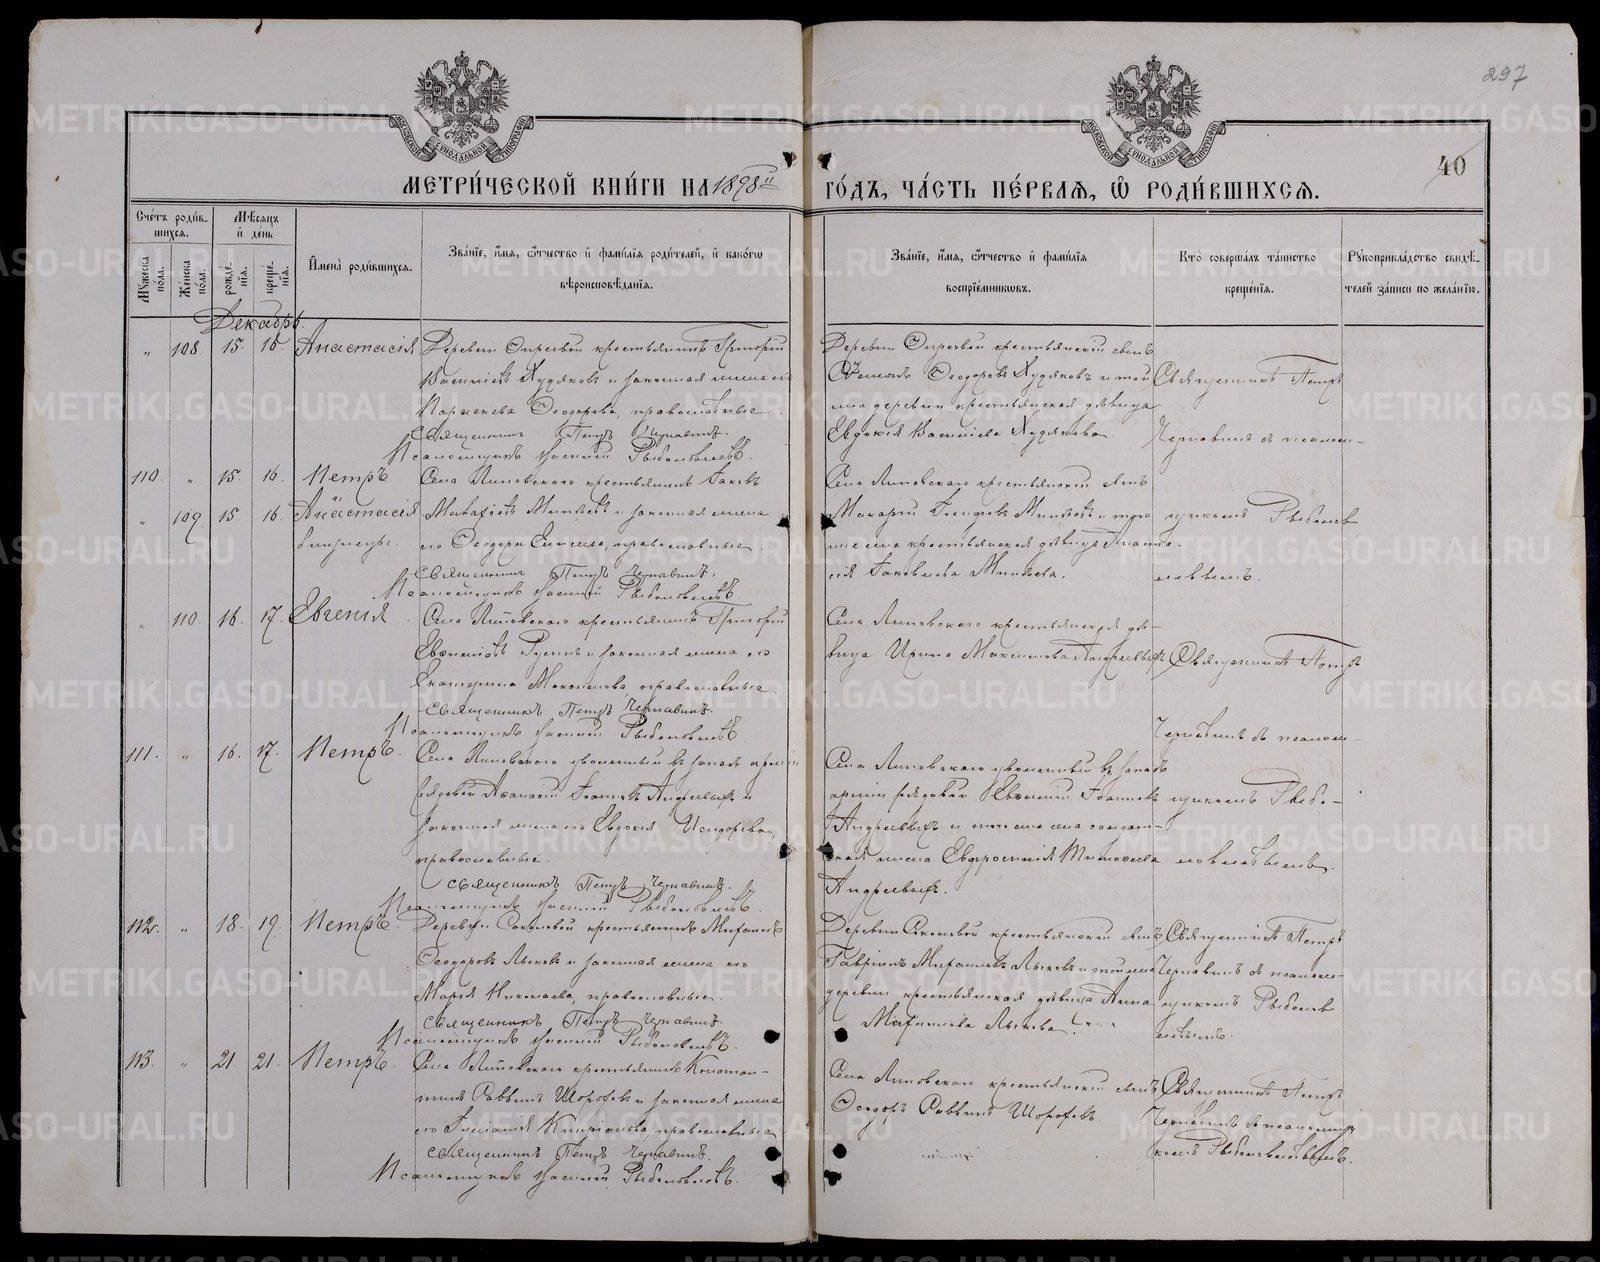 297
40
МЕТРИЧЕСКОЙ КНИГИ НА 1898й ГОДЪ, ЧАСТЬ ПЕРВАЯ, Ѿ РОДИВШИХСЯ.
Счетъ родившихся.
Мужеска пола.
Женска пола.
Мѣсяцъ и день
рожденія.
крещенія.
Имена родившихся.
Званіе, имя, ѿтчество и фамилія родителей, и какогѡ вѣроисповѣданія.
Званіе, имя, ѿтчество и фамилія воспріемникѡвъ.
Кто совершалъ таинство крещенія.
Рукоприкладство свидѣтелей записи по желанію.
Декабрь.
" 108. 15. 16. Анастасія
крестьянинъ Григорій
Васильевъ Худяковъ и законная жена его
Параскева Ѳеодорова, православные.
Священникъ Петръ Чернавинъ.
Псаломщикъ Рыболовлевъ.
крестьянскій сынъ
Ѳеодоровъ Худяковъ и той
же деревни крестьянская дѣвица
Евдокія Васильева Худякова.
Священникъ Петръ
Чернавинъ съ псалом-
110. " 15. 16. Петръ
Села Липовскаго крестьянинъ Іаковъ
" 109. 15. 16. Анастасія
близнецы.
Минѣевъ и законная жена
его Ѳеодора Елисеева, православные.
Священникъ Петръ Чернавинъ.
Псаломщикъ Рыболовлевъ.
Села Липовскаго крестьянскій сынъ
Макарій Минѣевъ и того
же села крестьянская дѣвица
Іаковлева Минѣева.
щикомъ Рыболов
левымъ.
" 110. 16. 17. Евгенія
Села Липовскаго крестьянинъ Григорій
и законная жена его
Екатерина православные.
Священникъ Петръ Чернавинъ.
Псаломщикъ Рыболовлевъ.
Села Липовскаго крестьянская дѣ-
вица Ирина Максимова Андреевыхъ
Священникъ Петръ
Чернавинъ съ псалом-
111. " 16. 17. Петръ.
Села Липовскаго уволенный въ запасъ арміи
рядовой Іоанновъ Андреевыхъ и
законная жена его Евдокія Исидорова,
православные.
Священникъ Петръ Чернавинъ.
Псаломщикъ Рыболовлевъ.
Села Липовскаго уволенный въ запасъ
арміи рядовой Іоанновъ
Андреевыхъ и того же села солдат-
ская жена Евфросинія Тимоѳеева
Андреевыхъ.
щикомъ Рыбо-
ловлевымъ.
112. " 18. 19. Петръ.
Деревни Соколовой крестьянинъ Михаилъ
Ѳеодоровъ Лыковъ и законная жена его
Марія Николаева, православные.
Священникъ Петръ Чернавинъ.
Псаломщикъ Рыболовлевъ.
Деревни Соколовой крестьянскій сынъ
Гавріилъ Михаиловъ Лыковъ и той же
деревни крестьянская дѣвица Анна
Михаилова Лыкова.
Священникъ Петръ
Чернавинъ съ псалом-
щикомъ Рыболов
левымъ.
113. " 21. 21. Петръ.
Села Липовскаго крестьянинъ Констан-
тинъ Савvинъ Шороховъ и законная жена
его Іуліанія православные.
Священникъ Петръ Чернавинъ.
Псаломщикъ Рыболовлевъ.
Села Липовскаго крестьянскій сынъ
Ѳеодоръ Шороховъ.
Священникъ Петръ
Чернавинъ съ псаломщи
комъ Рыболовлевымъ.
METRIKI.GASO-URAL.RU